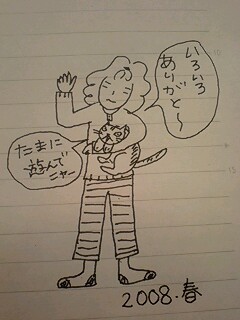 いろいろ
ありがと〜
たまに
遊んで
ニャー
2008.春